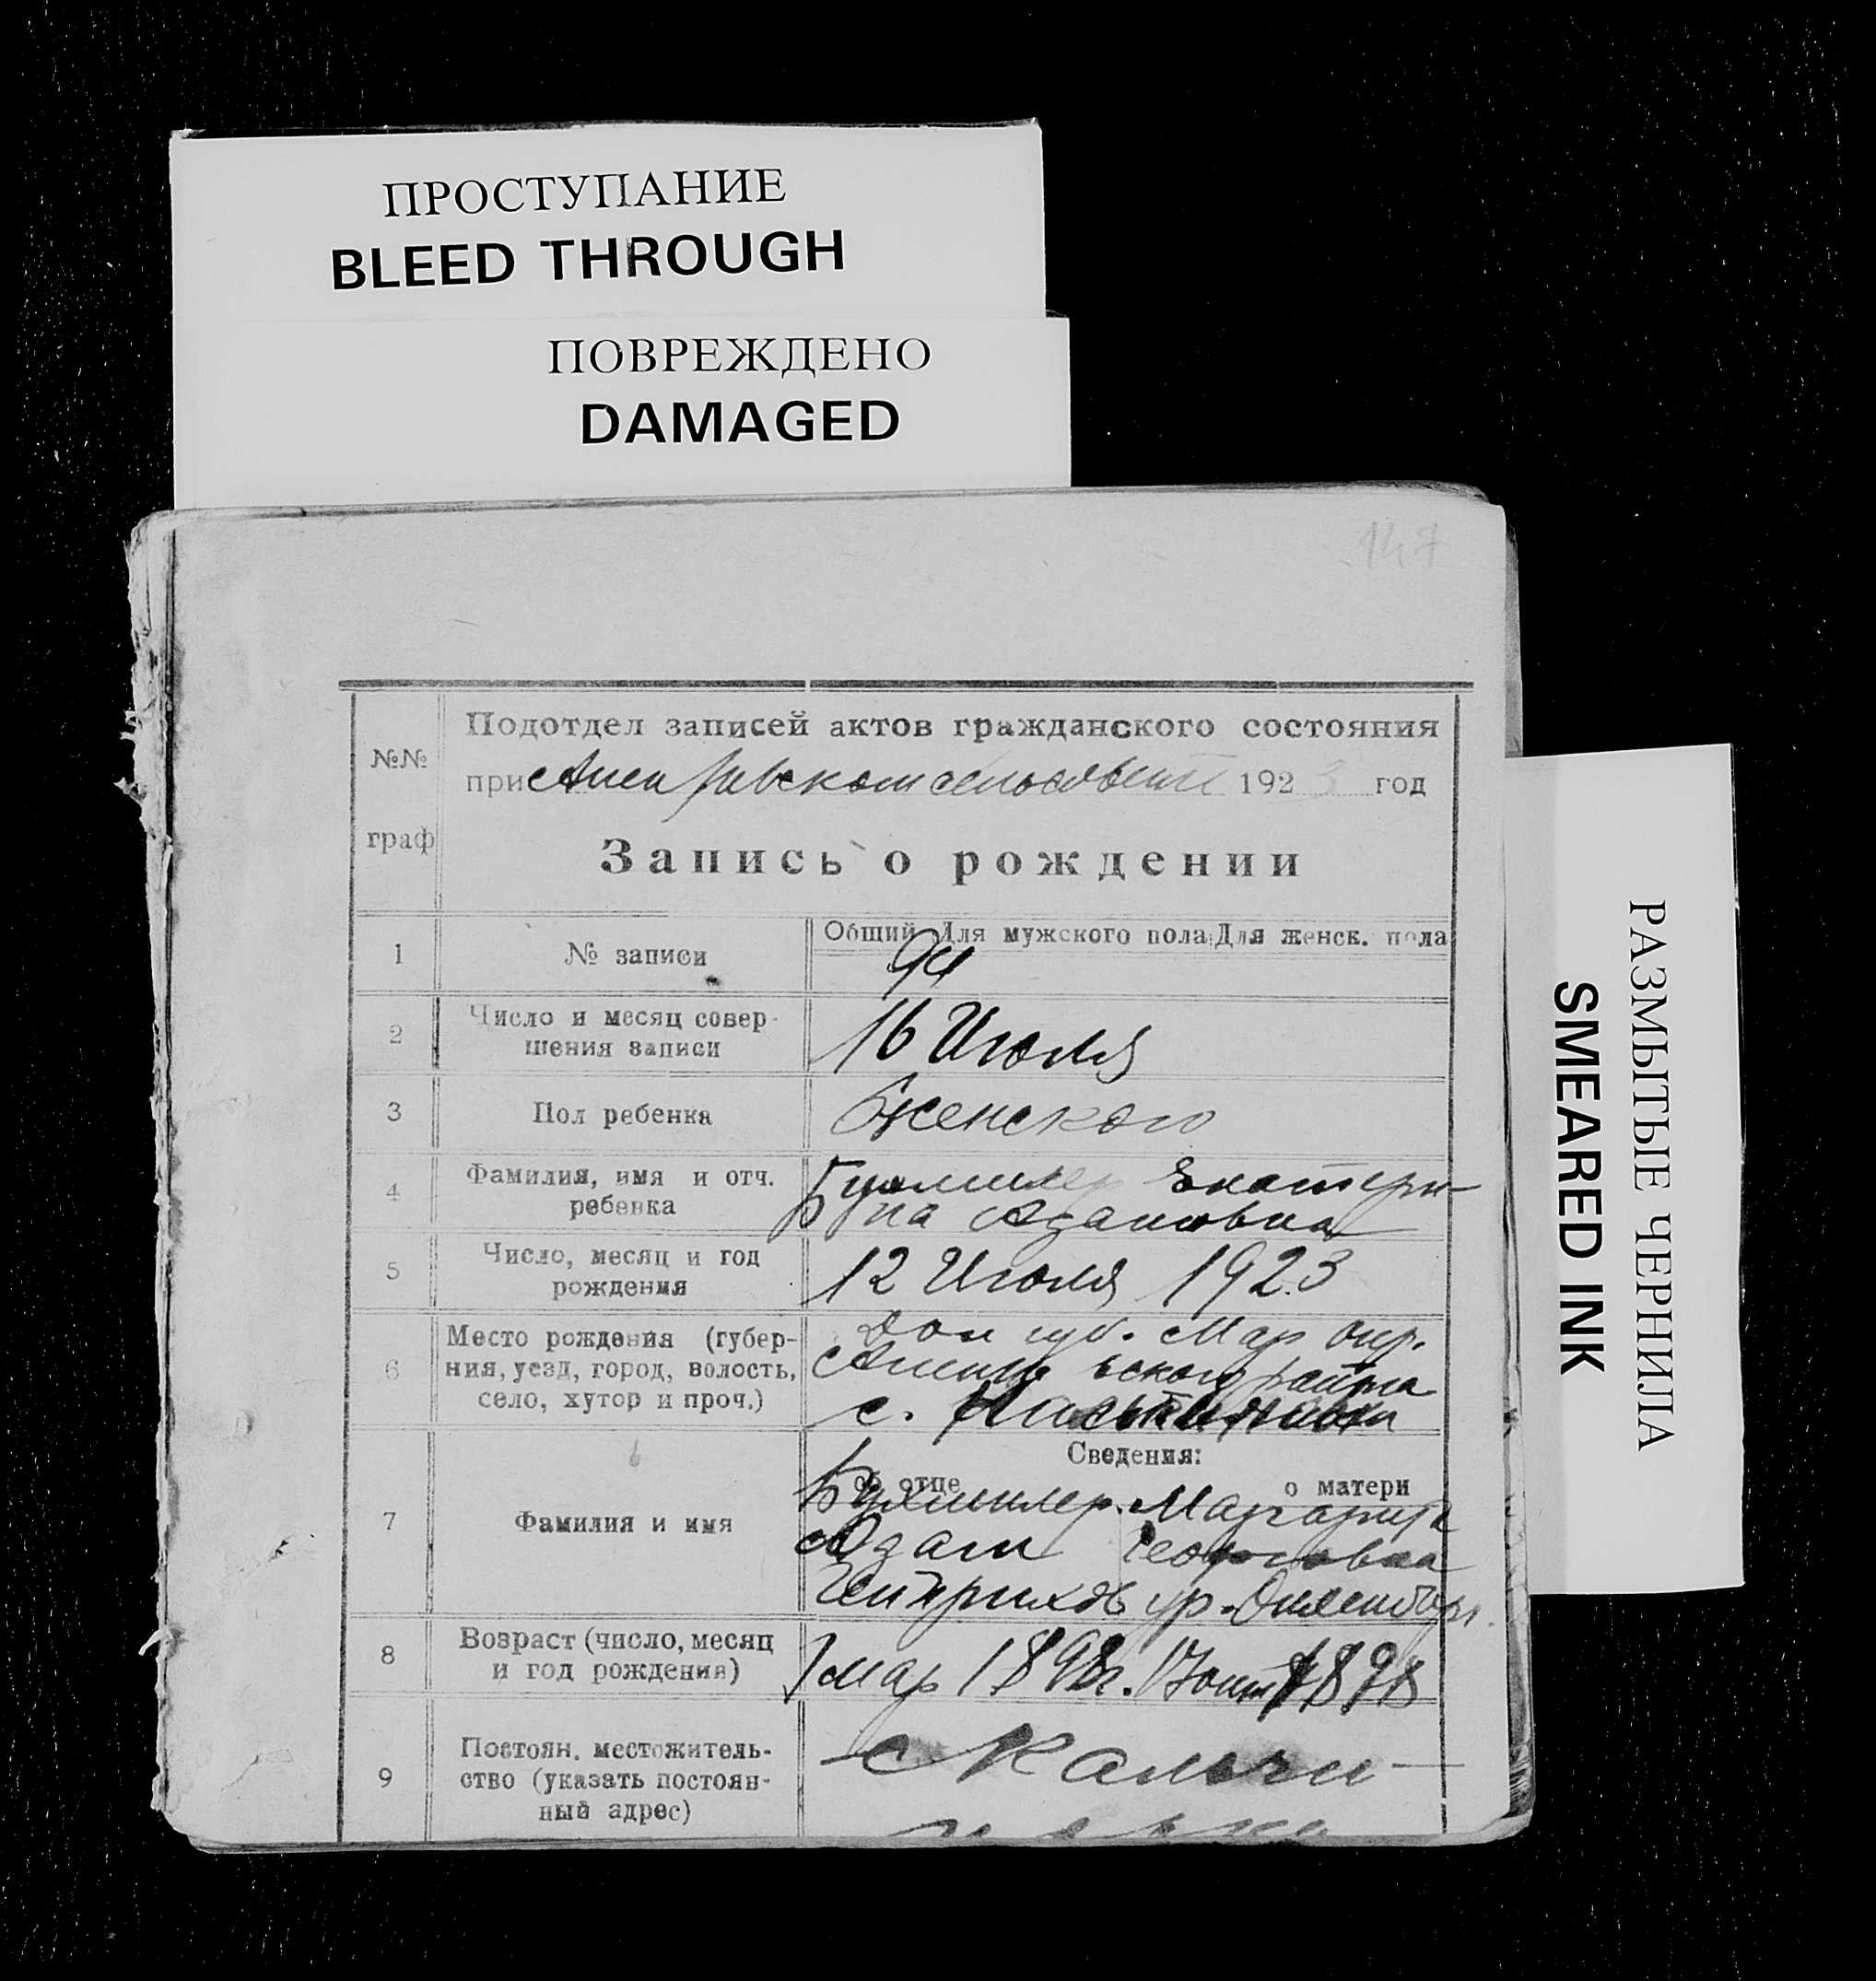 ПРОСТУПАНИЕ
BLEED THROUGH
ПОВРЕЖДЕНО
DAMAGED
147
№№
граф
Подотдел записей актов гражданского состояния
при 1923 год
Запись о рождении
1
№ записи
Общий Для мужского пола Для женск. пола
94
2
Число и месяц совер-
шения записи
16 Июля
3
Пол ребенка
Женского
4
Фамилия, имя и отч.
ребенка
Екатери-
на Адамовна
5
Число, месяц и год
рождения
12 Июля 1923
6
Место рождения (губер-
ния, уезд, город, волость,
село, хутор и проч.)
Дон губ. Мар окр.
района
с.
Сведения:
об отце
о матери
7
Фамилия и имя
Маргарита
Адам Георговна
ур.
8
Возраст (число, месяц
и год рождения)
1 мар 1898г. 17 1898
9
Постоян. местожитель-
ство (указать постоян-
ный адрес)
с Кальчи-
новка
РАЗМЫТЫЕ ЧЕРНИЛА
SMEARED INK